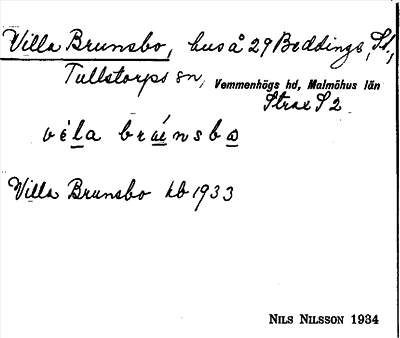 Villa Brunsbo, hus å 29 Beddinge, St.,
Tullstorps sn, Vemmenhögs hd, Malmöhus län
Strax S 2
véla bræ̀nsbɷ
Villa Brunsbo kb 1933
NILS NILSSON 1934